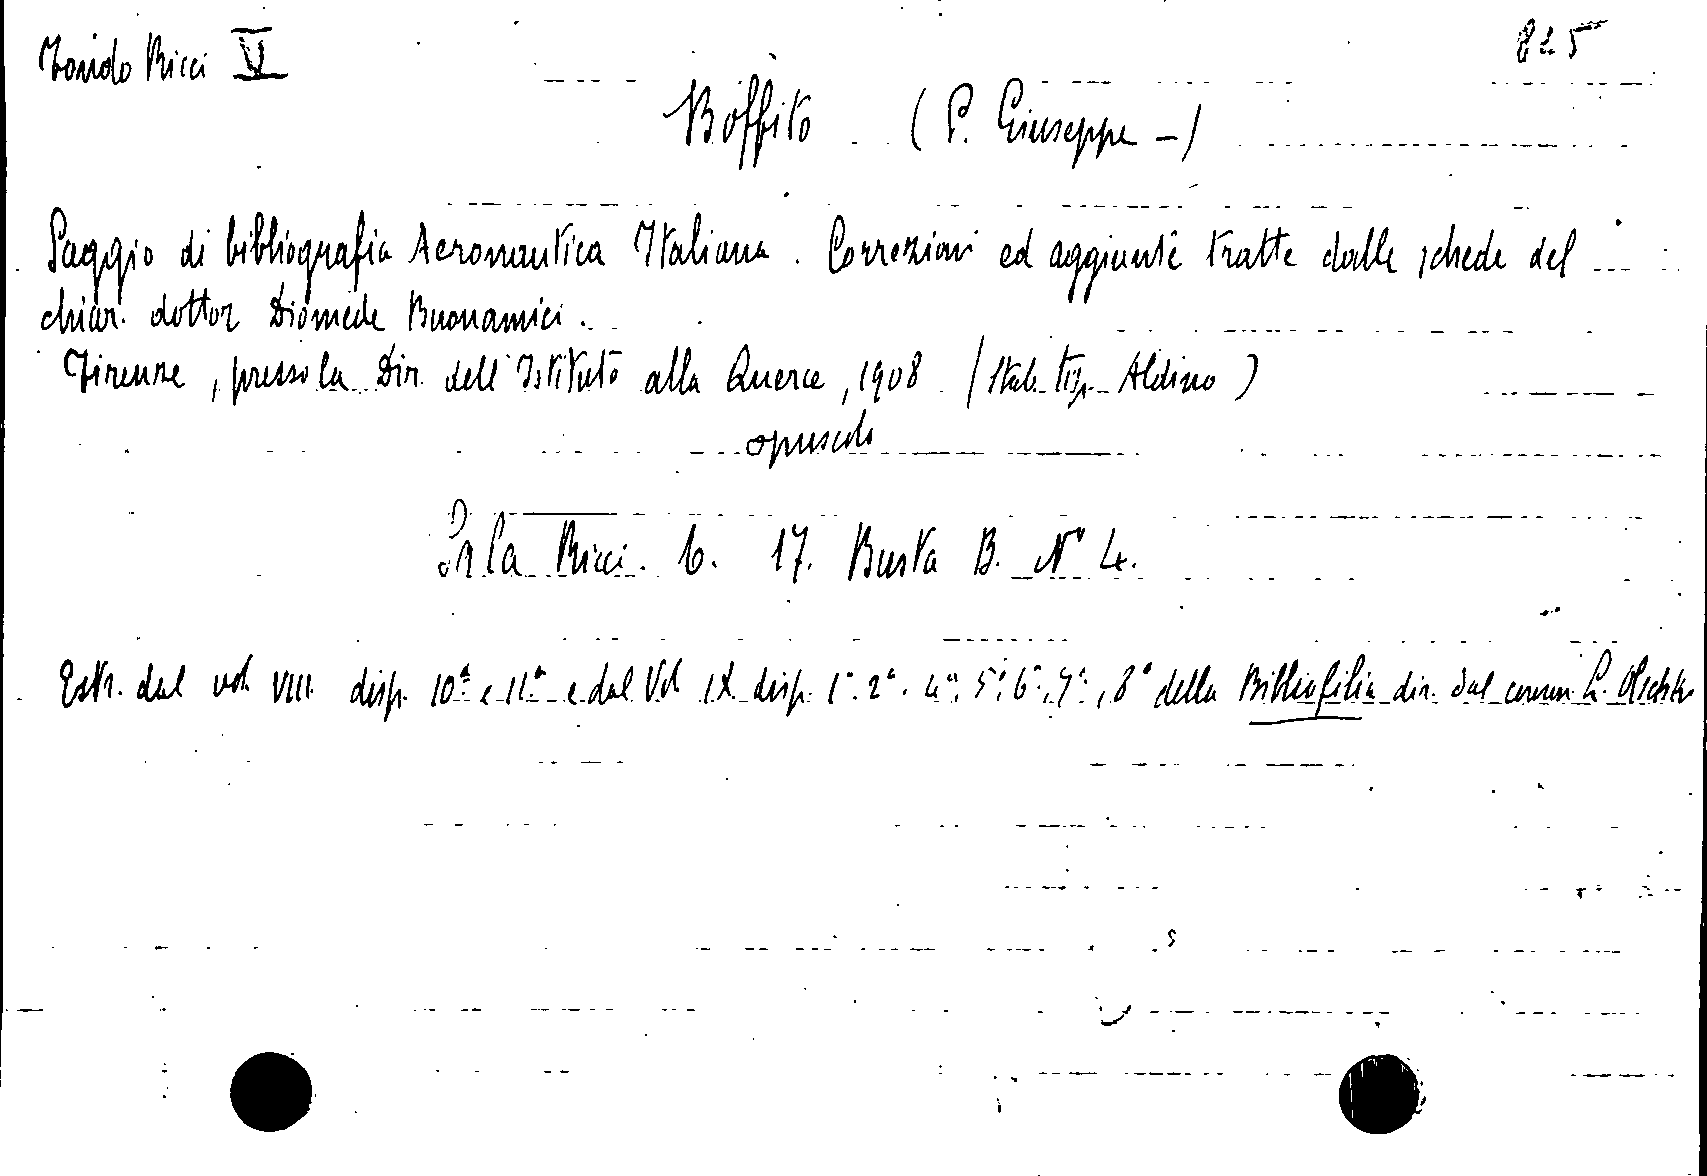 Fondo Ricci V
825
Boffito (P. Giuseppe -)
Saggio di bibliografia Aeronautica Italiana. Correzioni ed aggiunte tratte dalle schede del
chiar. dottor Diomede Buonamici.
Firenze, presso la Dir. dell'Istituto alla Querce, 1908 (Stab. Tip. Aldino)
opuscolo
Sala Ricci. 6. 17. Busta B. N° 4.
Estr. dal vol. VIII. disp. 10ª e 11ª e dal Vol IX disp. 1ª. 2ª. 4ª, 5ª, 6ª, 7ª, 8ª della Bibliofilia dir. dal comm. L. Olschki